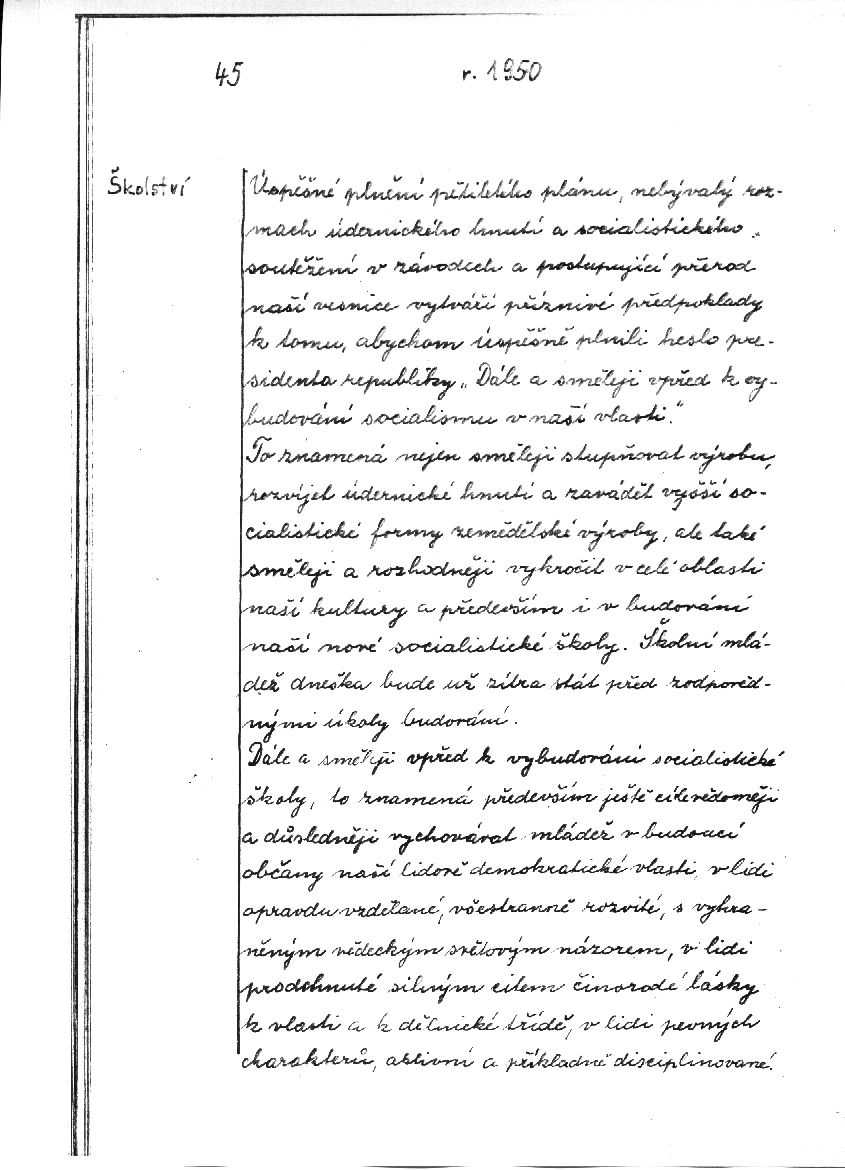 45 r. 1950
Školství
Úspěšné plnění pětiletého plánu, nebývalý roz-
mach údernického hnutí a socialistického
soutěžení v závodech a postupující přerod
naší vesnice vytváří příznivé předpoklady
k tomu, abychom úspěšně plnili heslo pre-
sidenta republiky „Dále a směleji vpřed k vy-
budování socialismu v naší vlasti."
To znamená nejen směleji stupňovat výrobu,
rozvíjet údernické hnutí a zavádět vyšší so-
cialistické formy zemědělské výroby, ale také
směleji a rozhodněji vykročit v celé oblasti
naší kultury a především i v budování
naší nové socialistické školy. Školní mlá-
dež dneška bude už zítra stát před zodpověd-
nými úkoly budování.
Dále a směleji vpřed k vybudování socialistické
školy, to znamená především ještě cílevědoměji
a důsledněji vychovávat mládež v budoucí
občany naší lidově demokratické vlasti, v lidi
opravdu vzdělané, všestranně rozvité, s vyhra-
něným vědeckým světovým názorem, v lidi
prodchnuté silným citem činorodé lásky
k vlasti a k dělnické třídě, v lidi pevných
charakterů, aktivní a příkladně disciplinované.